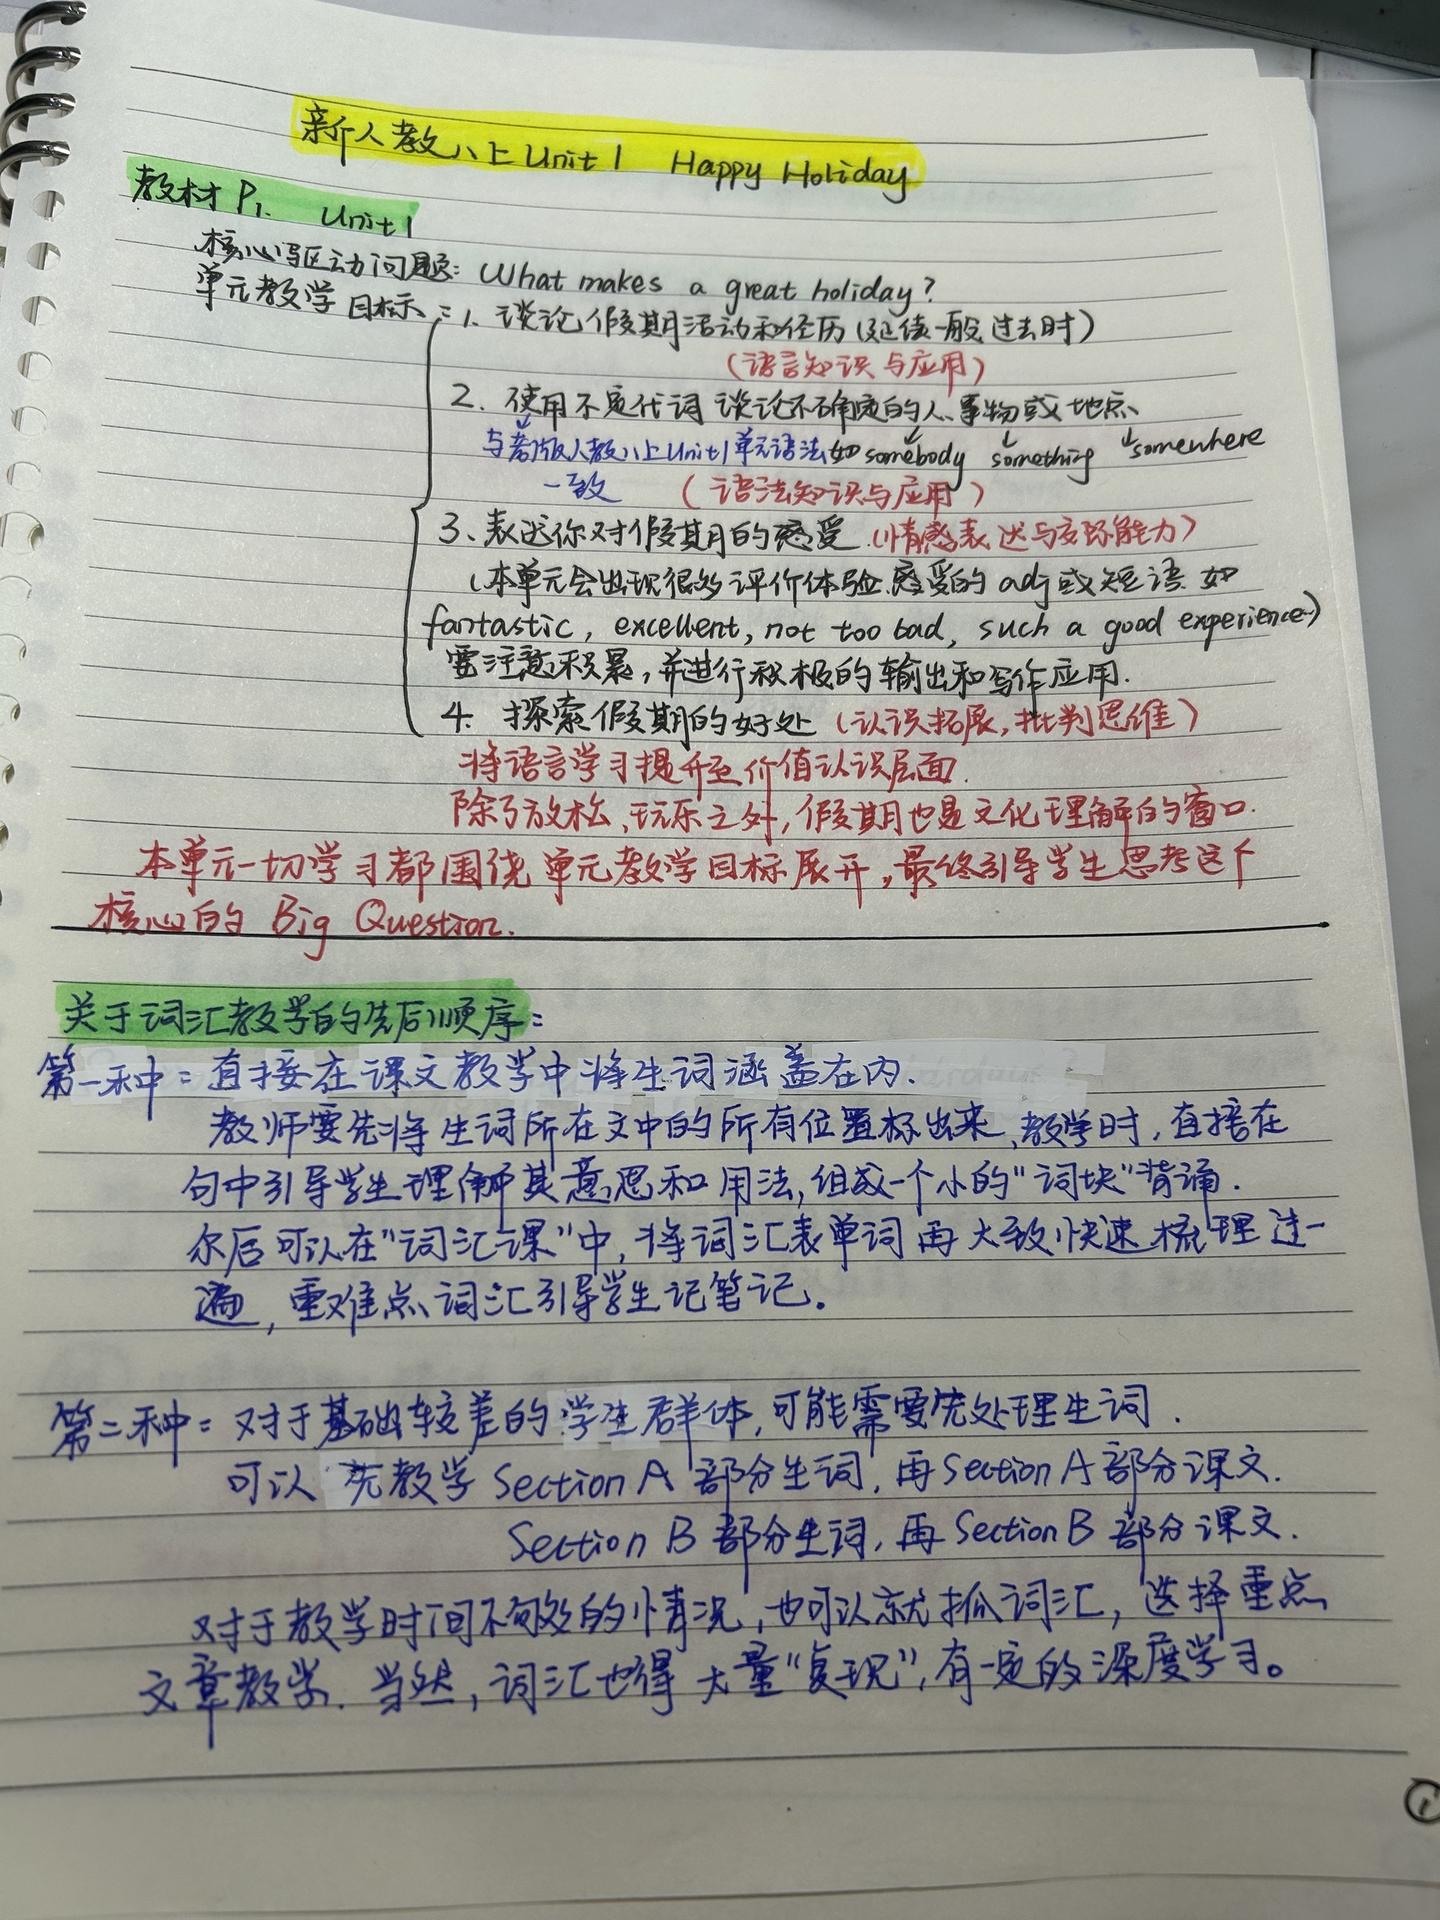 新人教八上Unit 1 Happy Holiday
教材P1. Unit 1
核心驱动问题: What makes a great holiday?
单元教学目标:1. 谈论假期活动和经历(延续一般过去时)
(语言知识与应用)
2. 使用不定代词谈论不确定的人、事物或地点
与旧版人教八上Unit1单元语法如somebody something somewhere
一致 (语法知识与应用)
3、表达你对假期的感受.(情感表达与交际能力)
(本单元会出现很多评价体验.感受的adj或短语.如
fantastic, excellent, not too bad, such a good experience…)
需注意积累,并进行积极的输出和写作应用.
4. 探索假期的好处(认识拓展,批判思维)
将语言学习提升至价值认识层面.
除了放松、玩乐之外,假期也是文化理解的窗口.
本单元一切学习都围绕单元教学目标展开,最终引导学生思考这个
核心的 Big Question.
关于词汇教学的先后顺序:
第一种:直接在课文教学中将生词涵盖在内.
教师要先将生词所在文中的所有位置标出来,教学时,直接在
句中引导学生理解其意思和用法,组成一个小的“词块”背诵.
尔后可以在“词汇课”中,将词汇表单词再大致快速梳理过一
遍,重难点词汇引导学生记笔记。
第二种:对于基础较差的学生群体,可能需要先处理生词.
可以先教学Section A部分生词,再Section A部分课文.
Section B部分生词,再Section B部分课文.
对于教学时间不够的情况,也可以就抓词汇,选择重点
文章教学.当然,词汇也得大量“复现”,有一定的深度学习。
1